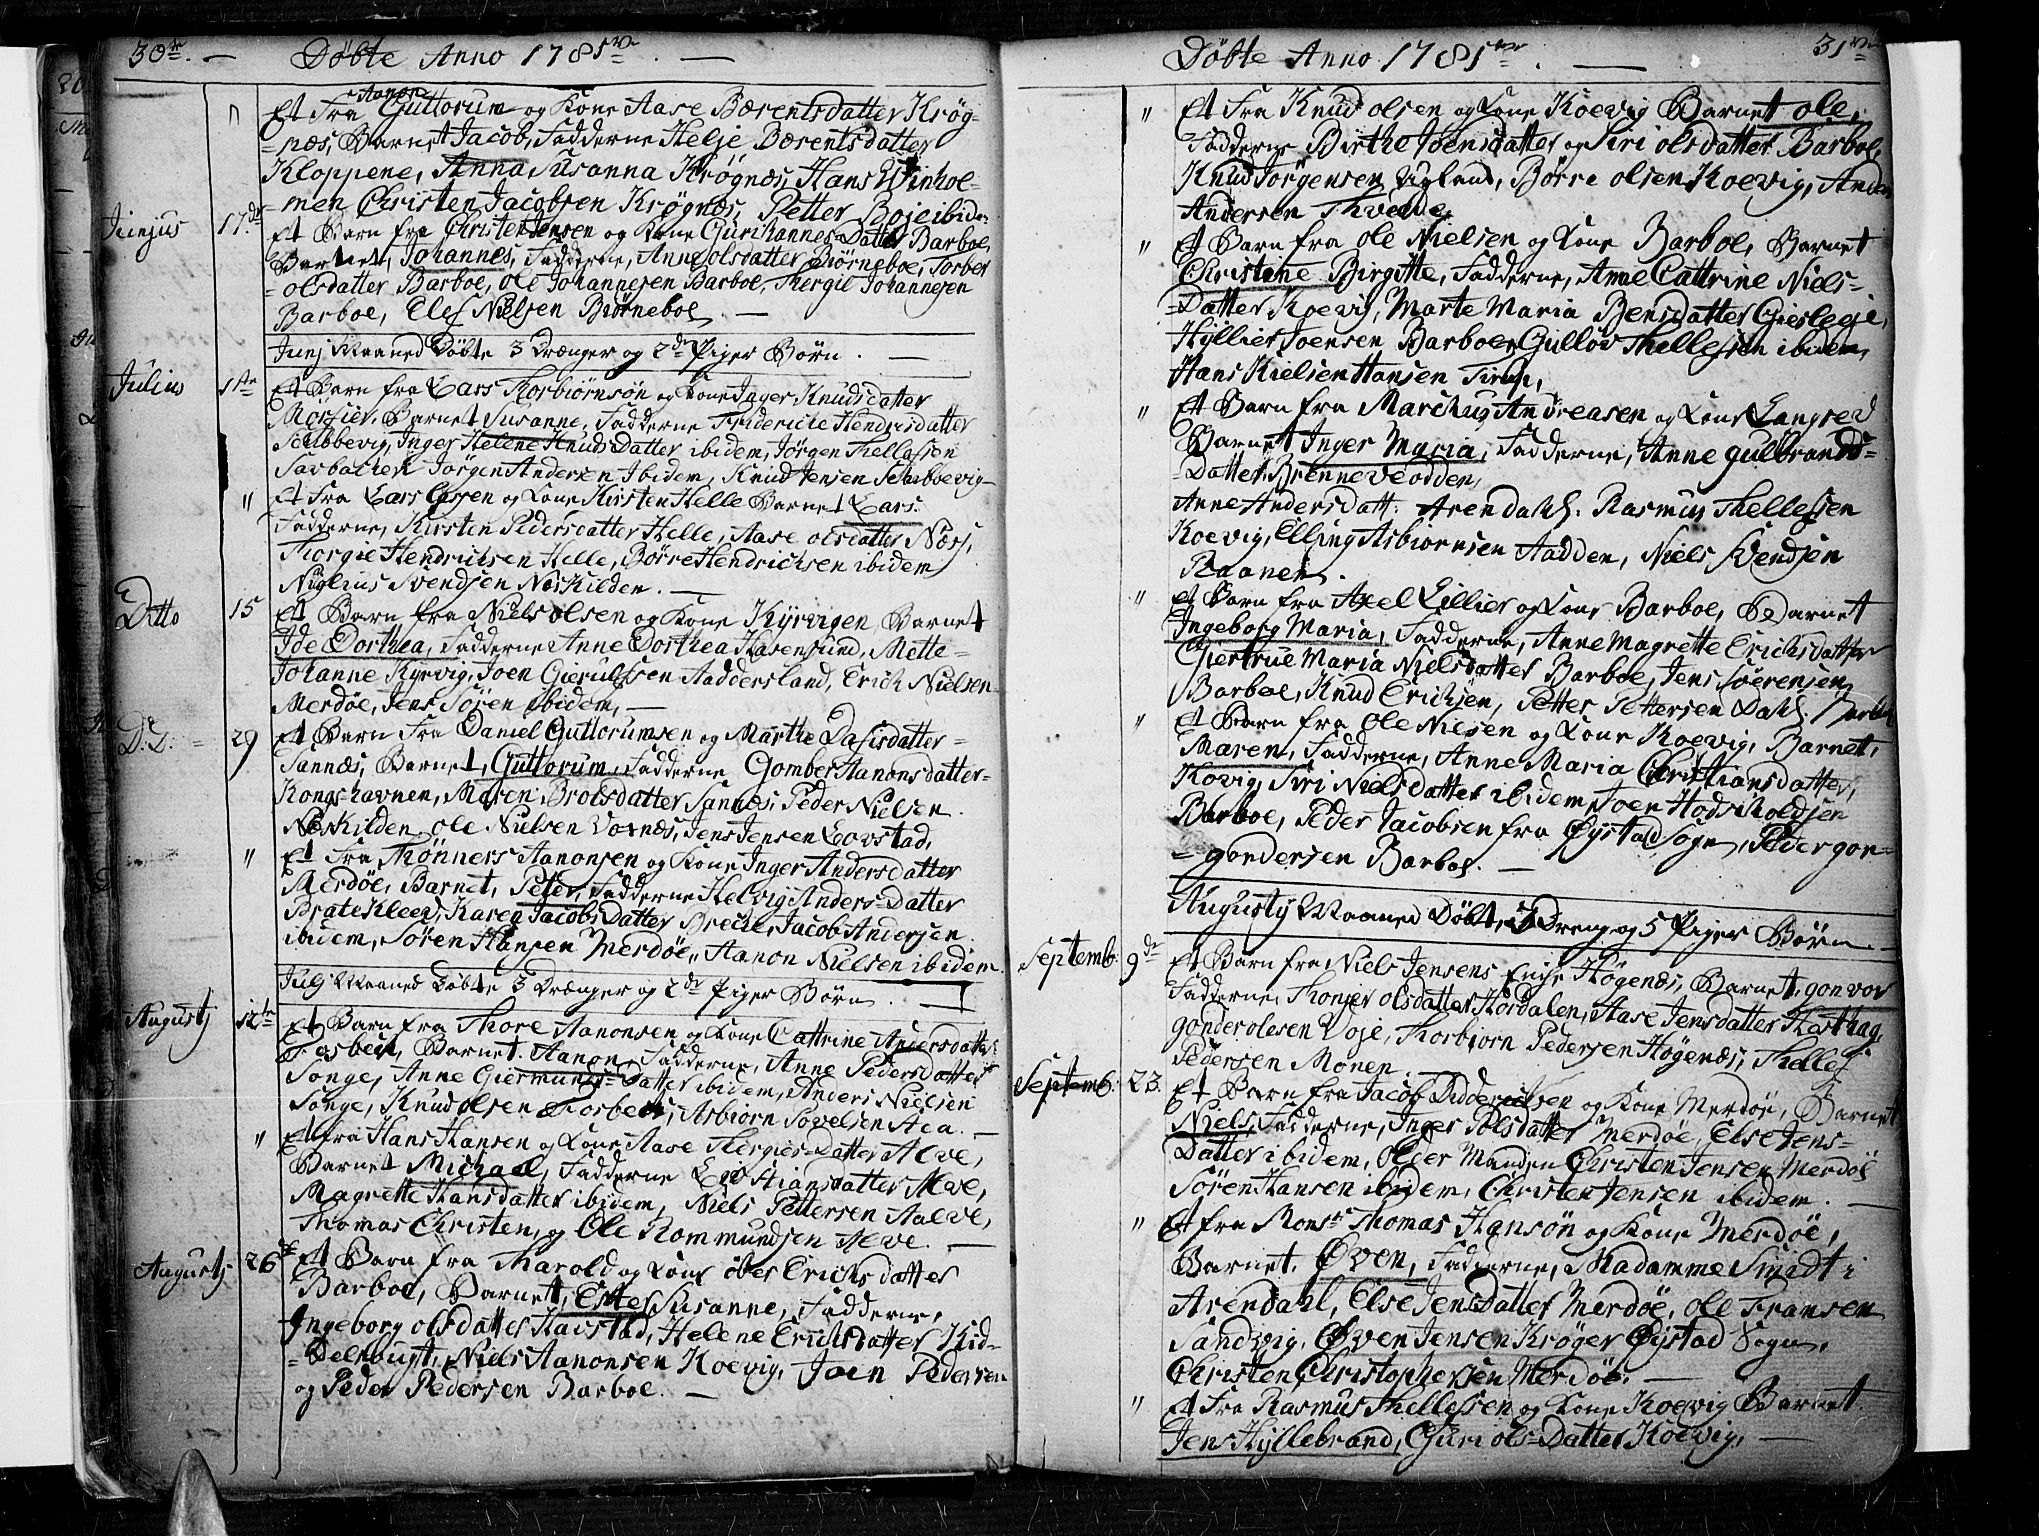 30te. — Døbte Anno 1781ve. —
" Et Fra Aanon Guttorum og Kone Aase Bærentsdatter Krøg-
=næs, Barnet Jacob, Fadderne Helje Bærentsdatter
Kloppene, Anna Susanna Krøgnæs, Hans Winhol-
=men Christen Jacobsen Krøgnæs, Petter Boje ibide:
Junjus 17de Et Barn fra Christen Jensen og Kone Guri hannes Datter Barboe,
Barnet, Johannes, Fadderne, Anne olsdatter Biörneboe, Torber
=olsdatter Barboe, ole Johannesen Barboe, Thergie Johannesen
Barboe, Elef Nielsen Biörneboe —
Junj Maaned Döbte 3 Drænger og 2de Piger Börn. —
Julius 1te Et Barn fra Lars Thorbiörnsön og Kone Jager Knudsdatter
Barnet Susanne, Fadderne Frideriche Hendrisdatter
Schibbevig, Inger Helene Knuds Datter ibidem, Jørgen Thellefsen
Savbachen Jørgen Andersen Ibidem, Knud Jensen
" Et Fra Lars Larsen og Kone Kirsten Helle Barnet Lars.
Fadderne, Kirsten Pedersdatter Helle, Aase olsdatter Næss,
Thorgie Hendrichsen Helle, Børre Hendrichsen ibidem
Svendsen Neskilden. —
Ditto 15 Et Barn fra Niels olsen og Kone Kyrvigen, Barnet
Ide Dorthea, Fadderne Anne Dorthea Hasensund, Mette
Johanne Kyrvig, Joen Gierulfssen Aaddersland, Erich Nielsen
Merdøe, Jens Sören ibidem, —
D: D: 29 Et Barn Fra Daniel Guttorumsen og Marthe Dasisdatter
Sannæs, Barnet, Guttorum, Fadderne Gomber Aanonsdatter
Kongshavnen, Maren Brolsdatter Sannæs, Peder Nielsen
Neskilden, ole Nielsen Vornæs, Jens Jensen Lovstad,
" Et Fra Thönners Aanonsen og Kone Inger Andersdatter
Merdøe, Barnet, Peter, Fadderne Helvig Anders=Datter
Bratekleev, Karen Jacobs Datter Breche, Jacob Andersen
ibidem, Sören Hansen Merdøe, Aanon Nielsen ibidem
Julj Maaned Döbte 3 Drænger og 2de Piger Börn. —
Augustj 12te Et Barn fra Thore Aanonsen og Kone Cattrine Andersdatter
Fosbech, Barnet. Aanon, Fadderne, Anne Pedersdatter
Songe, Anne Giermunds=Datter ibidem, Anders Nielsen
Songe, Knud olsen Fosbech, Asbiörn Sovelsen Aea. —
" Et fra Hans Hansen og Kone Aase Thergies=Datter Alve,
Barnet Michael, Fadderne Datter Alve,
Magrette Hansdatter ibidem, Niels Pettersen Aalve,
Thomas Christen, og Ole Rommundsen Alve. —
Augustj 26de Et Barn fra Tharald og Kone Erichsdatter
Barboe, Barnet, Ester Susanne, Fadderne,
Ingeborg olsdatter Havstad, Helene Erichsdatter Kid-
=delsbugt, Niels Aanonsen Koevig, Joen Pedersen
og Peder Pedersen Barboe. —
Døbte Anno 1781ve. — 31ve
" Et Fra Knud olsen og Kone Koevig Barnet ole,
Fadderne Birthe Joensdatter og Siri olsdatter Barboe,
Knud Jørgensen Ugland, Børre olsen Koevig, Anders
Andersen Thvede,
" Et Barn fra ole Nielsen og Kone Barboe, Barnet
Christine Birgitte, Fadderne, Anne Cattrine Niels-
=Datter Koevig, Marte Maria Bensdatter Giesleøe,
Hyllier Joensen Barboe, Gullov Thellefsen ibidem,
Hans Kielsen Hansen
" Et Barn fra Marchus Andreasen og Kone Langsed
Barnet Inger Maria, Fadderne, Anne gulbrands=
=Datter Brenneveodden,
Anne Andersdatt: Arendahl. Rasmus Thellefsen
Koevig, Elling Asbiornsen Aadden, Niels Svendsen
Raanen.
" et Barn fra Axel Lillier og Kone Barboe, Barnet
Ingeborg Maria, Fadderne, Anne Magrette Erichsdatter
Giertrue Maria Nielsdatter Barboe, Jens Søerensen
Barboe, Knud Erichsen, Petter Pettersen Dahl. Barboe
" Et Barn fra ole Niesen og Kone Koevig, Barnet,
Maren, Fadderne, Anne Maria Christiansdatter
Kovig, Siri Nielsdatter ibidem, Joen Hodskoldsen
Barboe, Peder Jacobsen fra Øystad Sogn, Peder gon-
=gondersen Barboe. —
Augusty Maaned Döbt, 3 Dreng og 5 Piger Börn. —
Septemb: 9de Et Barn fra Niels Jensens Enche Högenæs, Barnet. gonvor
Fadderne, Thonjer olsdatter Hordalen, Aase Jensdatter Hasthag,
gonder olesen Voje, Thorbiorn Pedersen Högenæs, Thellef
Pedersen Monen. —
Septemb: 23. Et Barn fra Jacob Didderichsen og Kone Merdøe, Barnet
Niels, Fadderne, Inger Polsdatter Merdøe, Else Jens=
Datter ibidem, older Manden Christen Jensen Merdøe
Søren Hansen ibidem, Christen Jensen ibidem. —
" Et fra Monsr Thomas Hansön og Kone Merdøe,
Barnet. Øven, Fadderne, Madamme Smidt i
Arendahl, Else Jens Datter Merdøe, ole Fransen
Sandvig, Øven Jensen Krøger Øystad Sogn,
Christen Christophersen Merdøe. —
" Et Fra Rasmus Thellefsen og Kone Koevig Barnet
Jens Hyllebrand, Guri ols=Datter Koevig, —